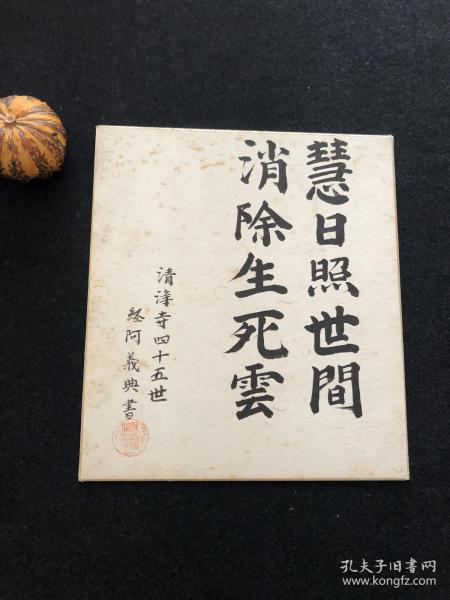 慧日照世間
消除生死雲
清浄寺四十五世
経阿義典書
孔夫子旧书网
www.kongfz.com